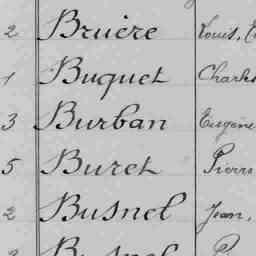 2 Bruère Louis,
1 Buquet Charles
3 Burban Eugène
5 Buret Pierre
2 Busnel Jean,
Busnel P